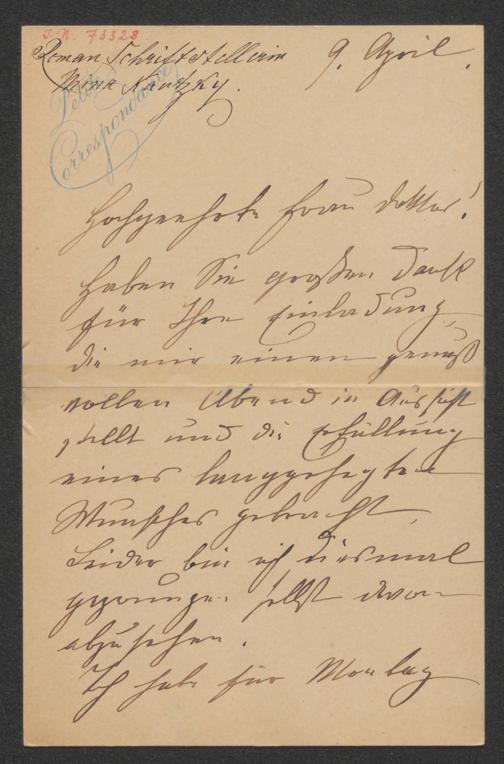 I.N. 73328
Roman Schriftstellerin 9. April.
Mina Kautzky.
Correspondance
Hochgeehrte Frau Doktor!
Haben Sie großen Dank
für Ihre Einladung,
die mir einen genuß
vollen Abend in Aussicht
stellt und die Erfüllung
eines langgehegten
Wunsches gebracht.
Leider bin ich diesmal
gezwungen selbst davon
abzusehen.
Ich habe für Montag